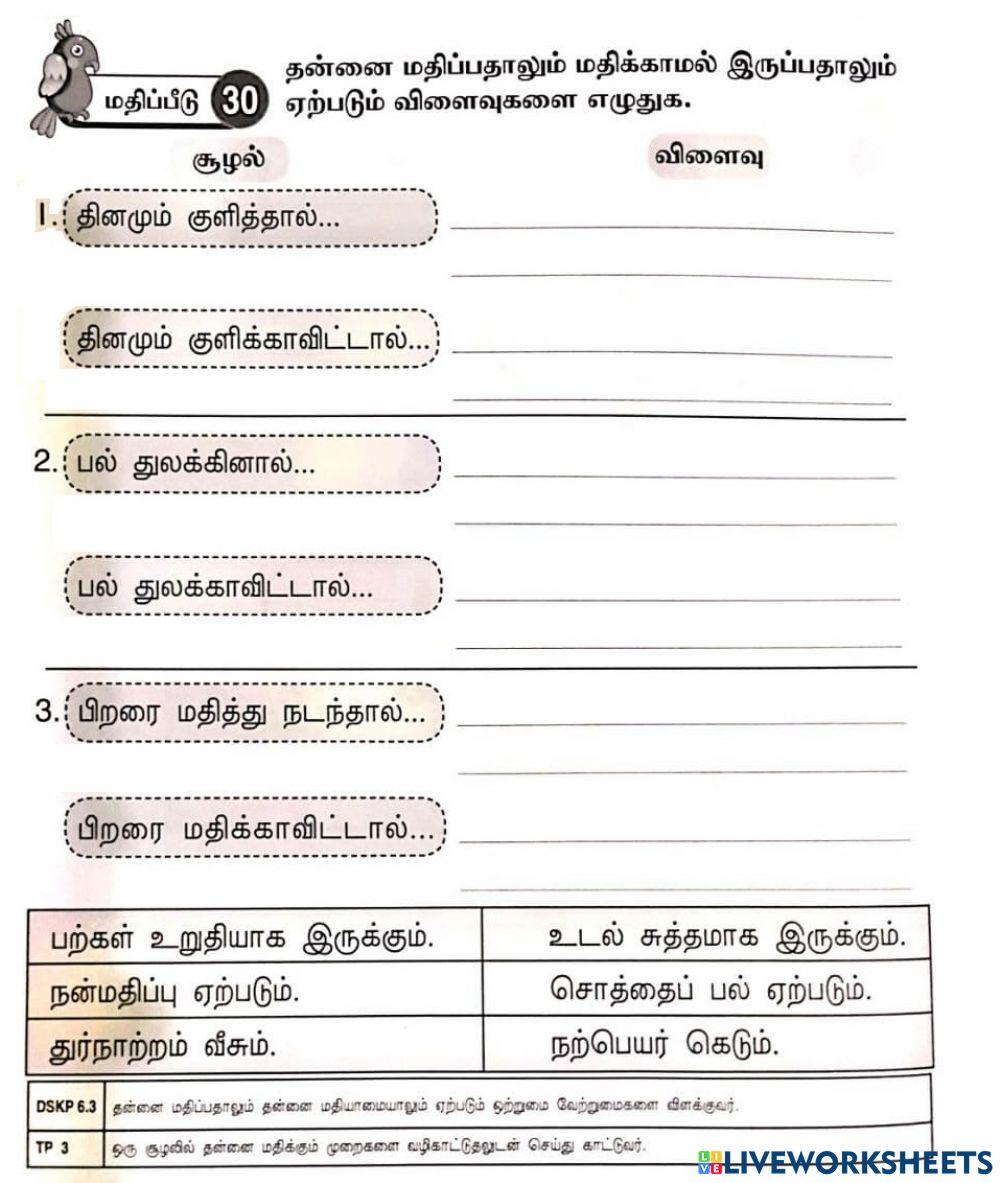 தன்னை மதிப்பதாலும் மதிக்காமல் இருப்பதாலும்
மதிப்பீடு 30 ஏற்படும் விளைவுகளை எழுதுக.
சூழல் விளைவு
1. தினமும் குளித்தால்...
தினமும் குளிக்காவிட்டால்...
2. பல் துலக்கினால்...
பல் துலக்காவிட்டால்...
3. பிறரை மதித்து நடந்தால்...
பிறரை மதிக்காவிட்டால்...
பற்கள் உறுதியாக இருக்கும். உடல் சுத்தமாக இருக்கும்.
நன்மதிப்பு ஏற்படும். சொத்தைப் பல் ஏற்படும்.
துர்நாற்றம் வீசும். நற்பெயர் கெடும்.
DSKP 6.3 தன்னை மதிப்பதாலும் தன்னை மதியாமையாலும் ஏற்படும் ஒற்றுமை வேற்றுமைகளை விளக்குவர்.
TP 3 ஒரு சூழலில் தன்னை மதிக்கும் முறைகளை வழிகாட்டுதலுடன் செய்து காட்டுவர்.
LIVE LIVEWORKSHEETS